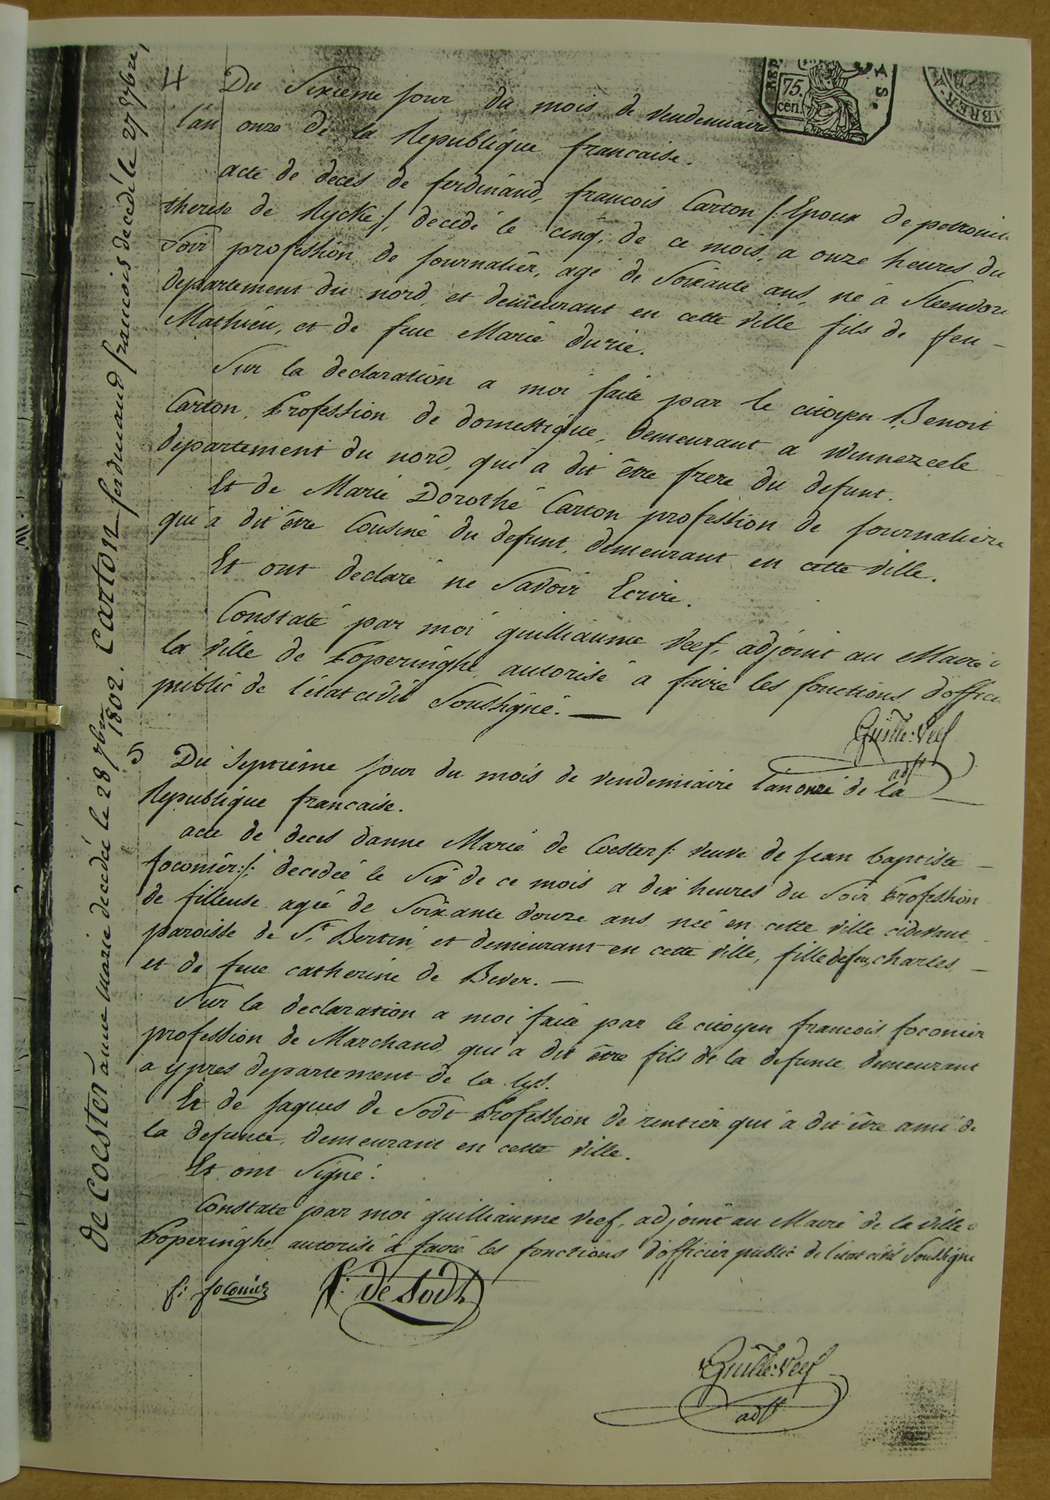 4
75.
cen.
Du Sixieme jour du mois de vendemiaire
l'an onze de la Republique francaise.
acte de deces de ferdinand, francois Carton /: Epoux de petronil
therese de Rycke :/, decedé le cinq, de ce mois, a onze heures du
Soir profession de journalier, agé de Soixante ans, né à Steendor
departement du nord, et demeurant en cette ville fils de feu —
Mathieu, et de feue Marie durie.
Sur la declaration a moi faite par le citoyen Benoit
Carton, Profession de domestique, demeurant a Winnezeele
departement du nord, qui a dit être frere du defunt.
Et de Marie Dorothé Carton profession de journaliere
qui a dit être Cousine du defunt, demeurant en cette ville.
Et ont declaré ne Savoir Ecrire.
Constaté par moi guilliaume Veef, adjoint au Maire d
la ville de Poperinghe, autorisé a faire les fonctions d'offici
public de l'état civil Soussigné. —
Guille: Veef
adjt
5
Du Septieme jour du mois de vendemiaire l'an onze de la
Republique francaise.
acte de deces d'anne Marie de Coester /: veuve de jean baptiste —
foconier :/ decedée le Six de ce mois a dix heures du Soir Profession
de filleuse agée de Soixante douze ans née en cette ville cidevant
paroisse de St. Bertin, et demeurant en cette ville, fille de feu charles —
et de feue catherine de Bever. —
Sur la declaration a moi faite par le citoyen francois foconier
profession de Marchand, qui a dit être fils de la defunte, demeurant
a ypres departement de la lys.
Et de jaques de Sodt Profession de rentier qui à dit être ami de
la defunte, demeurant en cette ville.
Et ont Signé.
Constaté par moi guilliaume Veef, adjoint au Maire de la ville d
Poperinghe, autorisé à faire les fonctions d'officier public de l'état civil Soussigné
f: foconier
J: de Sodt
Guille: Veef
adjt
De COESTER anne marie decedée le 28 7bre 1802. CARTON ferdinand francois decedé le 27 7bre,